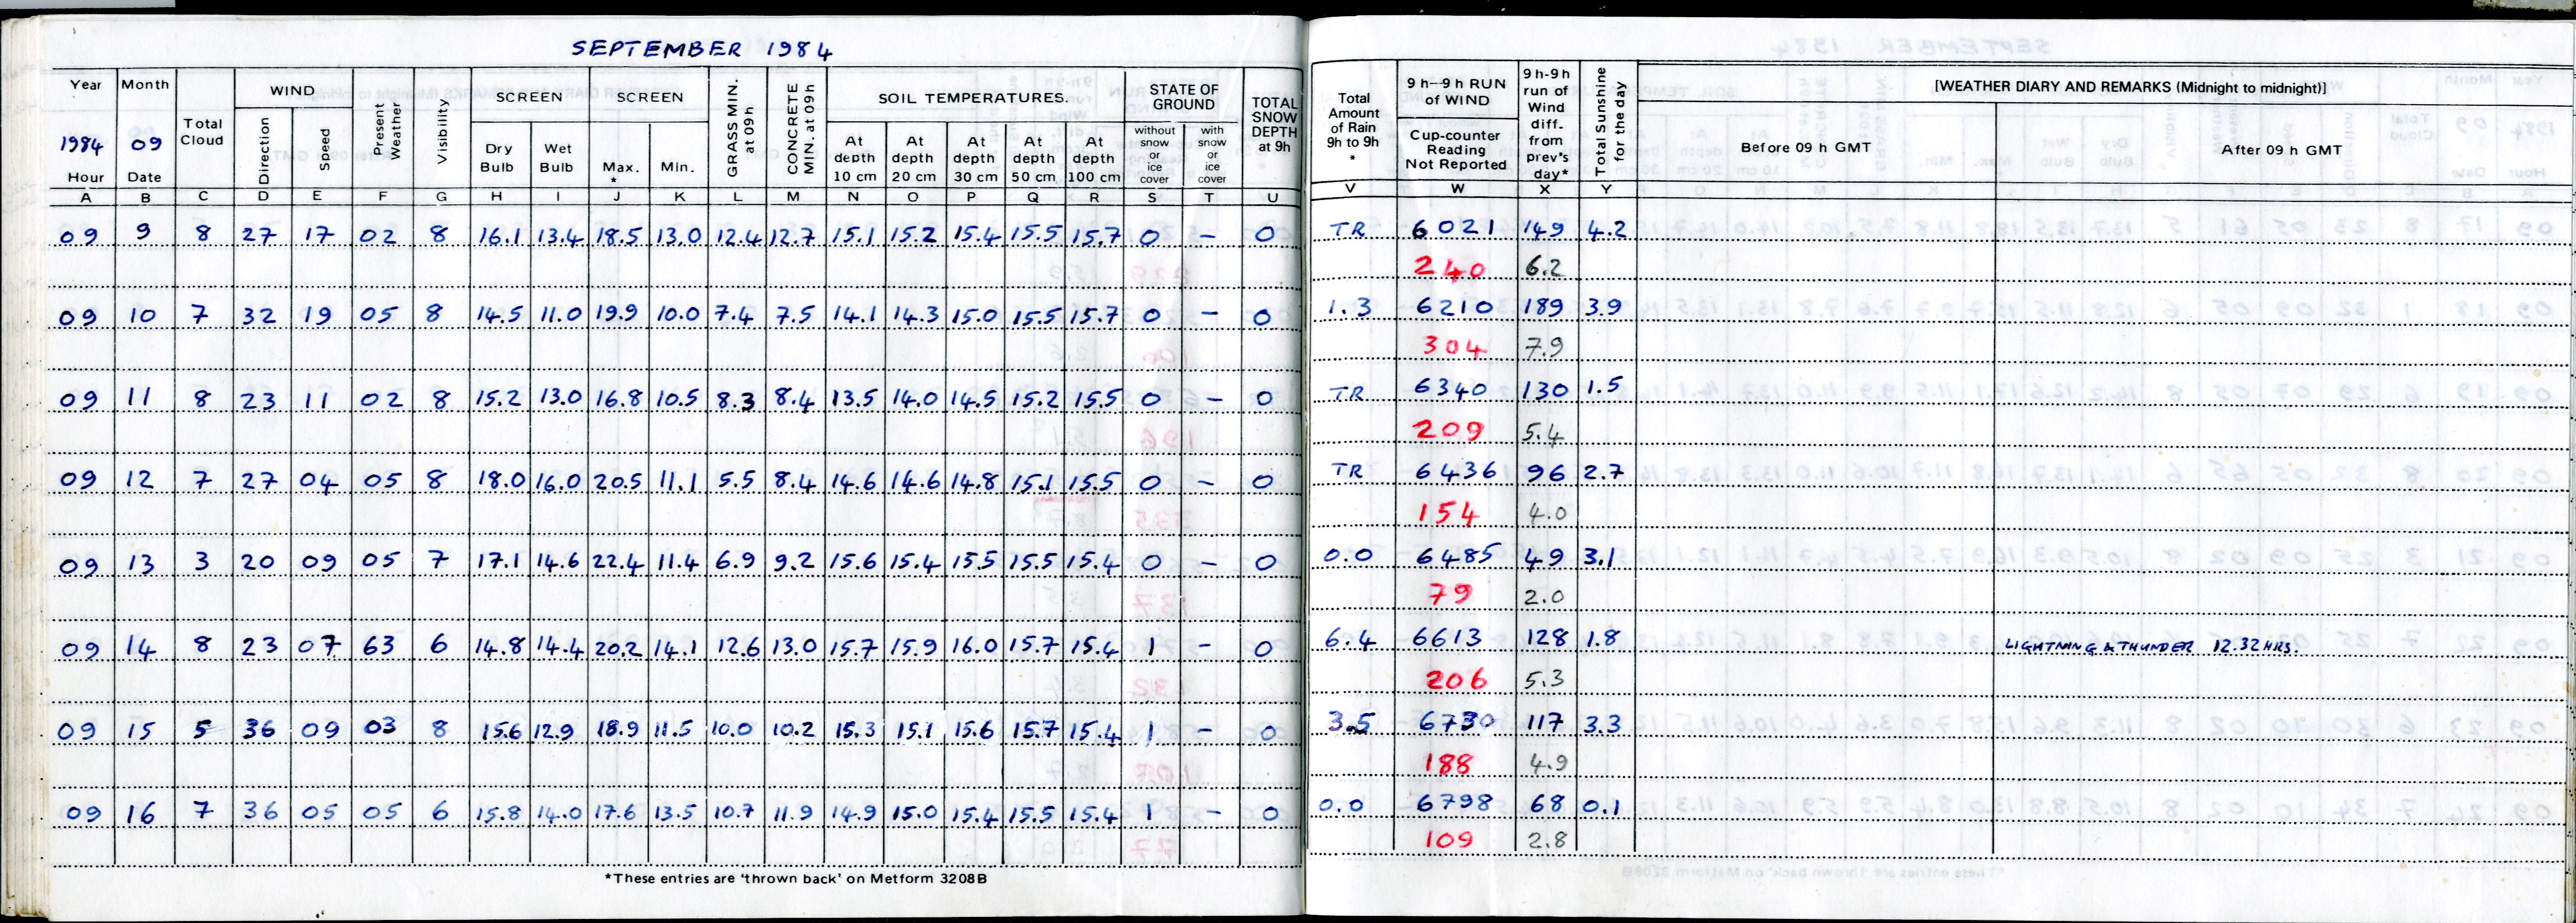 SEPTEMBER 1984
Year Month WIND SCREEN SCREEN SOIL TEMPERATURES. STATE OF GROUND
1984 09 Total Cloud Direction Speed Present Weather Visibility Dry Bulb Wet Bulb Max. * Min. GRASS MIN. at 09h CONCRETE MIN. at 09h At depth 10 cm At depth 20 cm At depth 30 cm At depth 50 cm At depth 100 cm without snow or ice cover with snow or ice cover TOTAL SNOW DEPTH at 9h
Hour Date
Total Amount of Rain 9h to 9h * 9h–9h RUN of WIND Cup-counter Reading Not Reported 9h-9h run of Wind diff. from prev's day* Total Sunshine for the day [WEATHER DIARY AND REMARKS (Midnight to midnight)]
Before 09 h GMT After 09 h GMT
A B C D E F G H I J K L M N O P Q R S T U V W X Y
09 9 8 27 17 02 8 16.1 13.4 18.5 13.0 12.4 12.7 15.1 15.2 15.4 15.5 15.7 0 – 0 TR 6021 149 4.2
240 6.2
09 10 7 32 19 05 8 14.5 11.0 19.9 10.0 7.4 7.5 14.1 14.3 15.0 15.5 15.7 0 – 0 1.3 6210 189 3.9
304 7.9
09 11 8 23 11 02 8 15.2 13.0 16.8 10.5 8.3 8.4 13.5 14.0 14.5 15.2 15.5 0 – 0 TR 6340 130 1.5
209 5.4
09 12 7 27 04 05 8 18.0 16.0 20.5 11.1 5.5 8.4 14.6 14.6 14.8 15.1 15.5 0 – 0 TR 6436 96 2.7
154 4.0
09 13 3 20 09 05 7 17.1 14.6 22.4 11.4 6.9 9.2 15.6 15.4 15.5 15.5 15.4 0 – 0 0.0 6485 49 3.1
79 2.0
09 14 8 23 07 63 6 14.8 14.4 20.2 14.1 12.6 13.0 15.7 15.9 16.0 15.7 15.4 1 – 0 6.4 6613 128 1.8 LIGHTNING & THUNDER 12.32 HRS.
206 5.3
09 15 5 36 09 03 8 15.6 12.9 18.9 11.5 10.0 10.2 15.3 15.1 15.6 15.7 15.4 1 – 0 3.5 6730 117 3.3
188 4.9
09 16 7 36 05 05 6 15.8 14.0 17.6 13.5 10.7 11.9 14.9 15.0 15.4 15.5 15.4 1 – 0 0.0 6798 68 0.1
109 2.8
*These entries are 'thrown back' on Metform 3208B